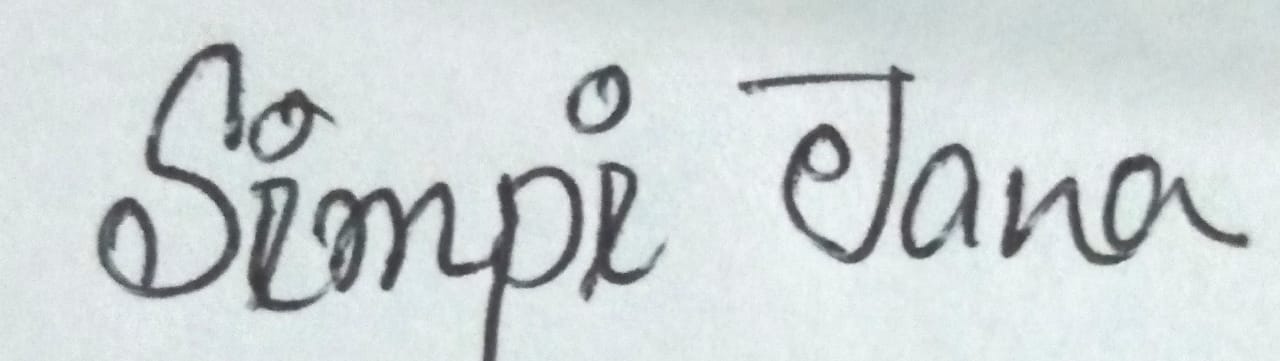 Simpi Jana